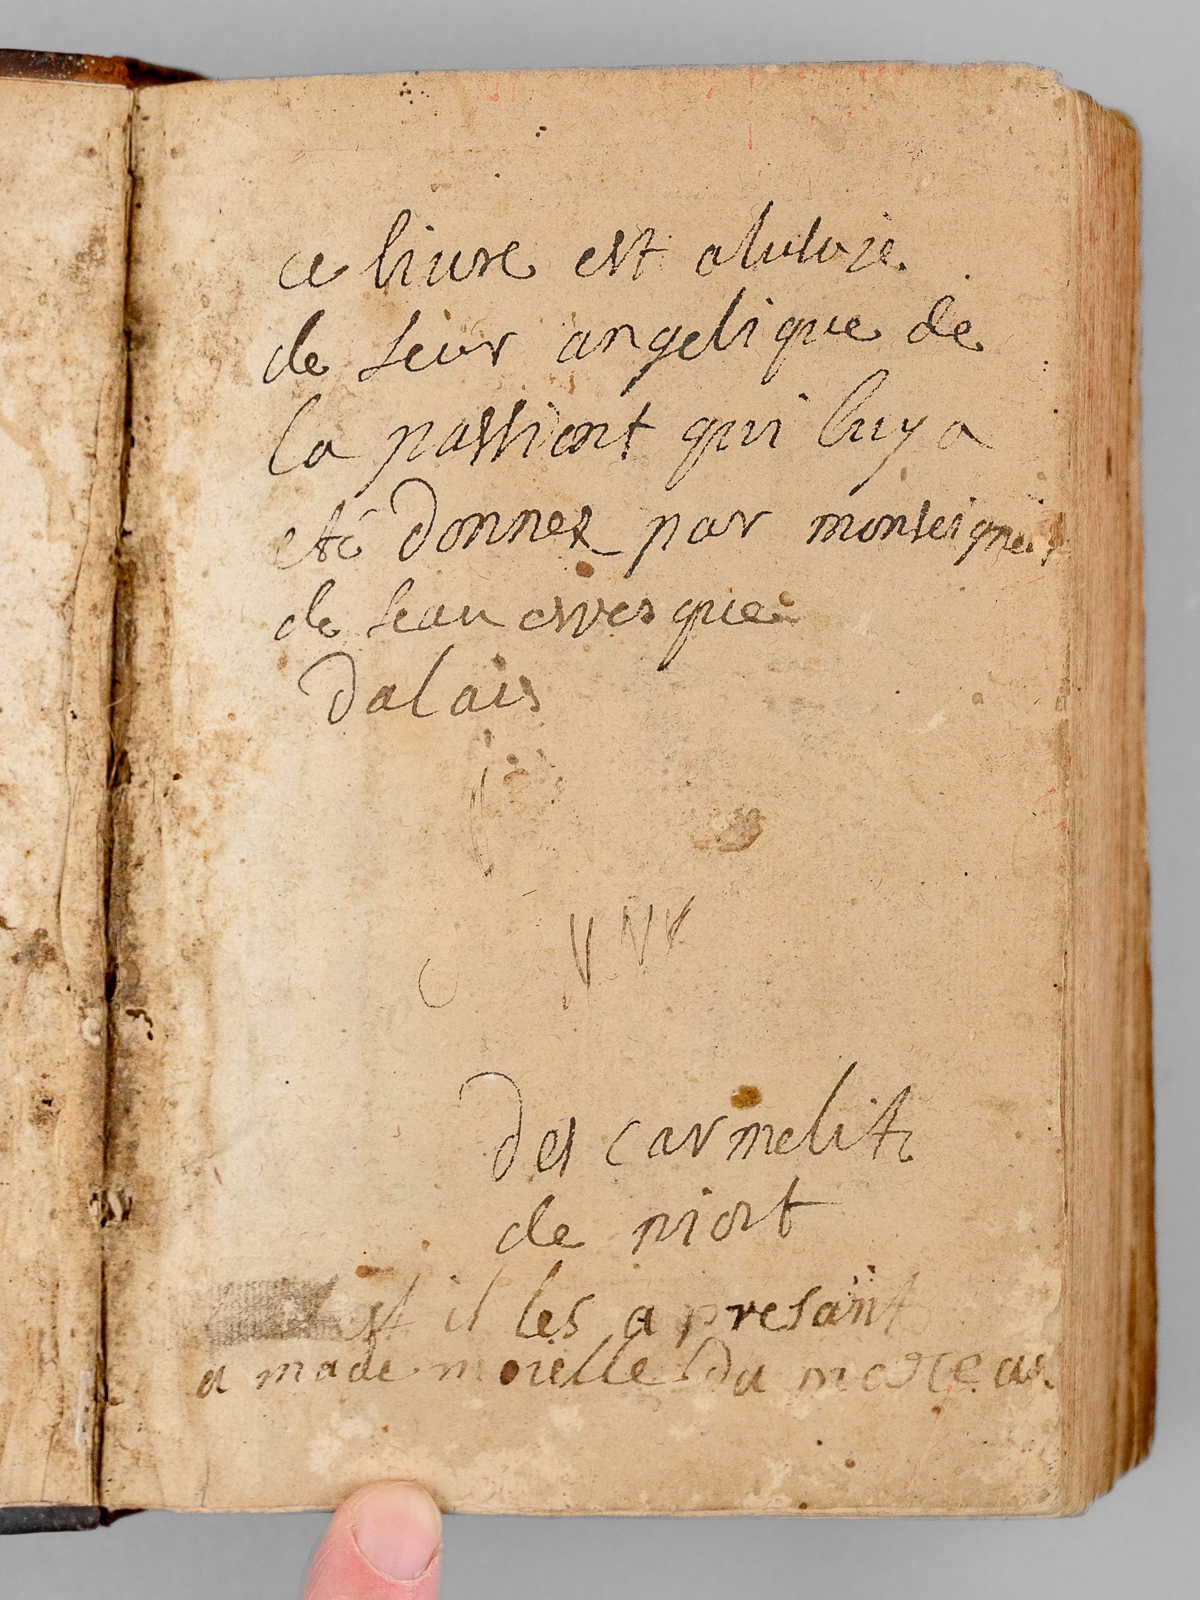 ce liure est aluluse
de seur angelique de
la passiont qui luy a
eté donnez par monseigneur
de sean evesque
dalais
des carmelite
de niort
est il les a presant
a made moielle du moteas